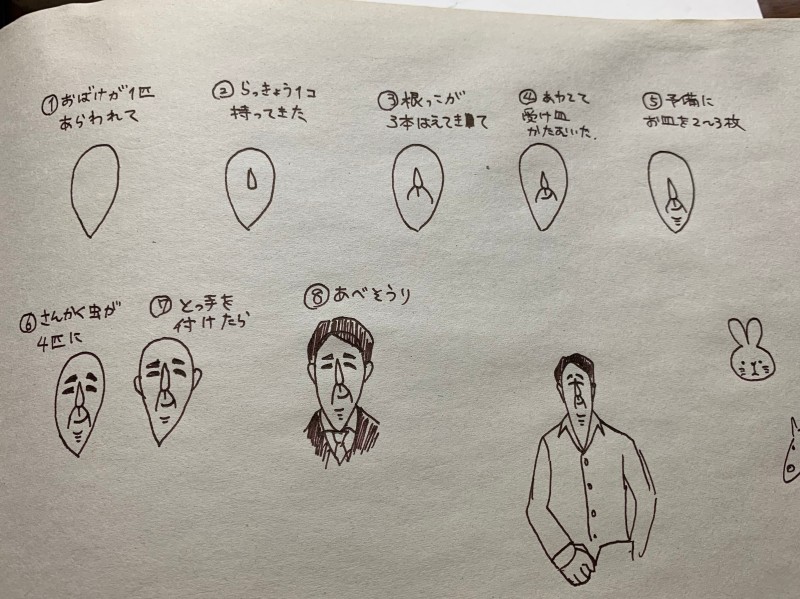 ①おばけが1匹
あらわれて
②らっきょう1コ
持ってきた
③根っこが
3本はえてきて
④あわてて
受け皿
かたむいた.
⑤予備に
お皿を2〜3枚
⑥さんかく虫が
4匹に
⑦とっ手を
付けたら
⑧あべそうり